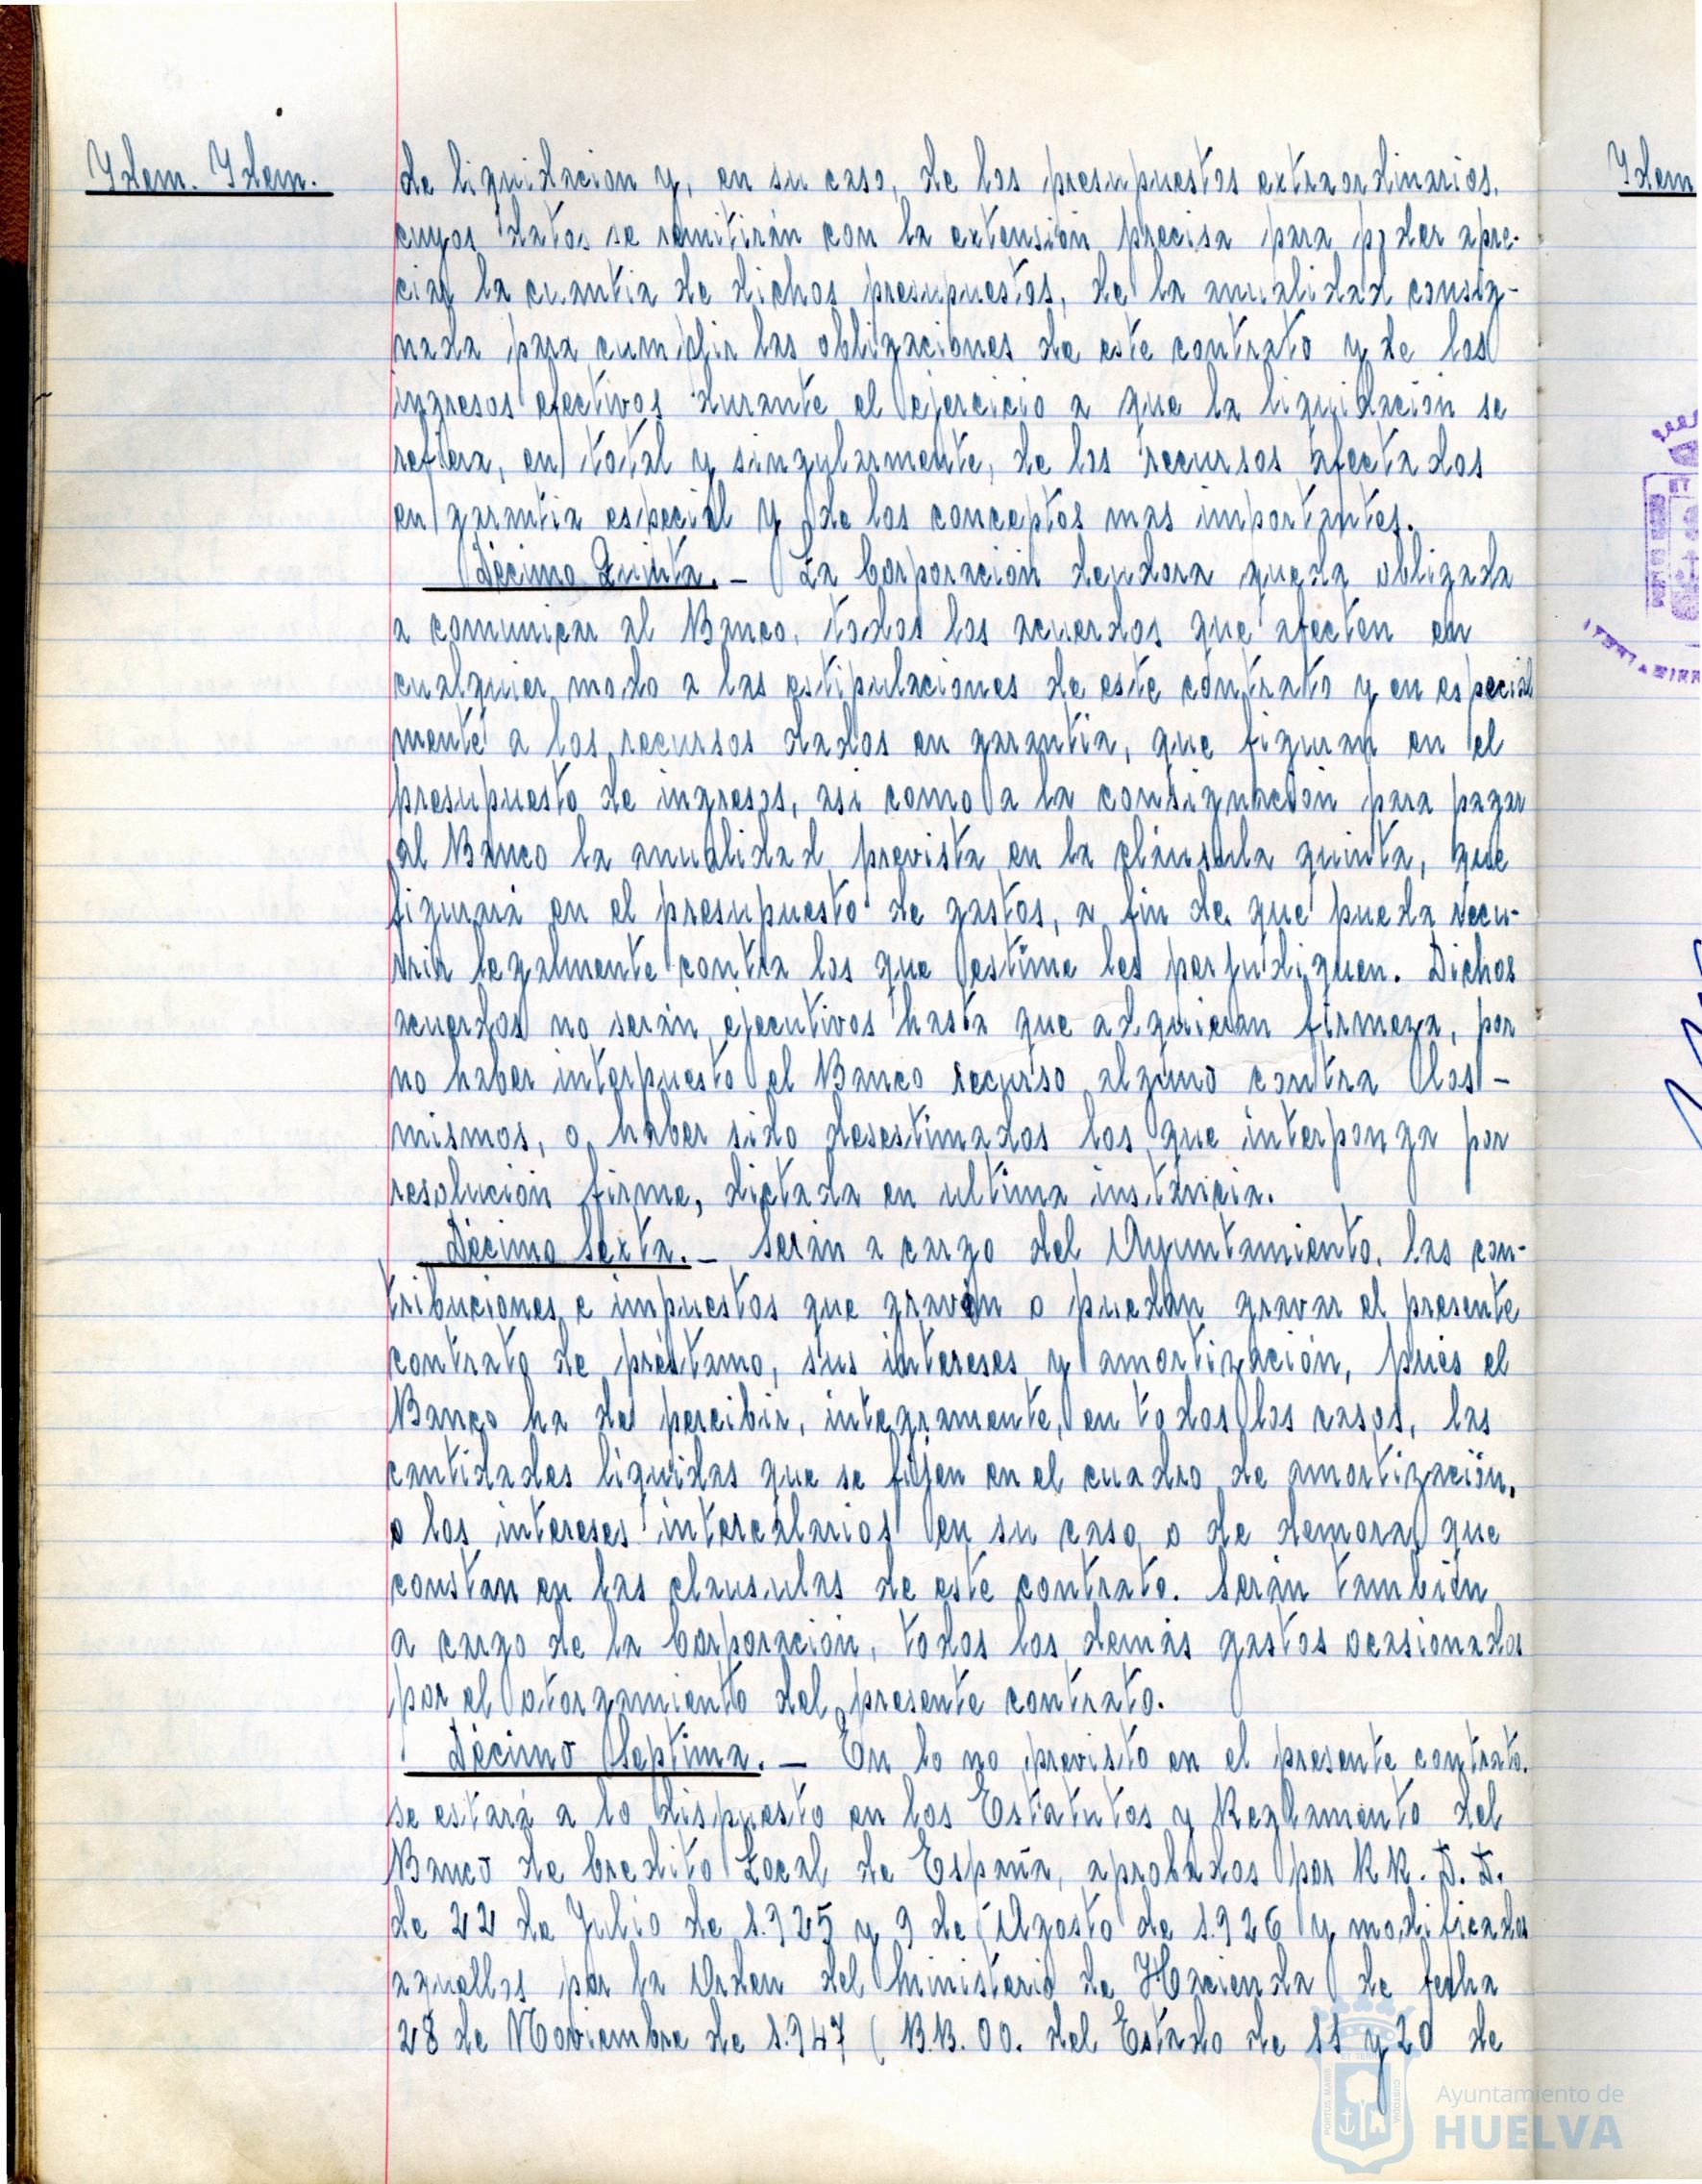 Ydem. Ydem.
de liquidacion y, en su caso, de los presupuestos extraordinarios,
cuyos datos se remitirán con la extensión precisa para poder apre-
ciar la cuantia de dichos presupuestos, de la anualidad consig-
nada para cumplir las obligaciones de este contrato y de los
ingresos efectivos durante el ejercicio a que la liquidación se
refiera, en total y singularmente, de los recursos afectados
en garantia especial y de los conceptos mas importantes.
Décimo Quinta.- La Corporación deudora queda obligada
a comunicar al Banco, todos los acuerdos que afecten en
cualquier modo a las estipulaciones de este contrato y en especial
mente a los recursos dados en garantia, que figuran en el
presupuesto de ingresos, asi como a la consignación para pagar
al Banco la anualidad prevista en la cláusula quinta, que
figurará en el presupuesto de gastos, a fin de que pueda recu-
rrir legalmente contra los que estime les perjudiquen. Dichos
acuerdos no serán ejecutivos hasta que adquieran firmeza, por
no haber interpuesto el Banco recurso alguno contra los-
mismos, o haber sido desestimados los que interponga por
resolución firme, dictada en ultima instancia.
Décimo Sexta.- Serán a cargo del Ayuntamiento, las con-
tribuciones e impuestos que graven o puedan gravar el presente
contrato de préstamo, sus intereses y amortización, pués el
Banco ha de percibir, integramente, en todos los casos, las
cantidades liquidas que se fijen en el cuadro de amortización,
o los intereses intercalarios en su caso o de demora que
constan en las clausulas de este contrato. Serán tambien
a cargo de la Corporación, todos los demás gastos ocasionados
por el otorgamiento del presente contrato.
Décimo Septima.- En lo no previsto en el presente contrato,
se estará a lo dispuesto en los Estatutos y Reglamento del
Banco de Credito Local de España, aprobados por RR. D.D.
de 22 de Julio de 1.925 y 9 de Agosto de 1.926 y modificados
aquellos por la Orden del Ministerio de Hacienda de fecha
28 de Noviembre de 1.947 (B.B. OO. del Estado de 11 y 20 de
Ydem
Ayuntamiento de
HUELVA